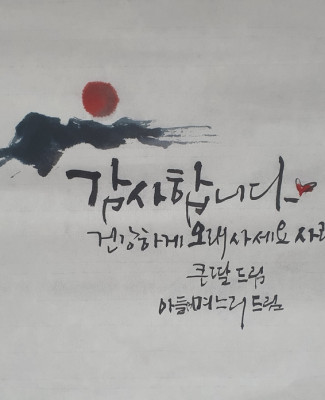 감사합니다
건강하게 오래사세요
큰딸 드림
아들 며느리 드림